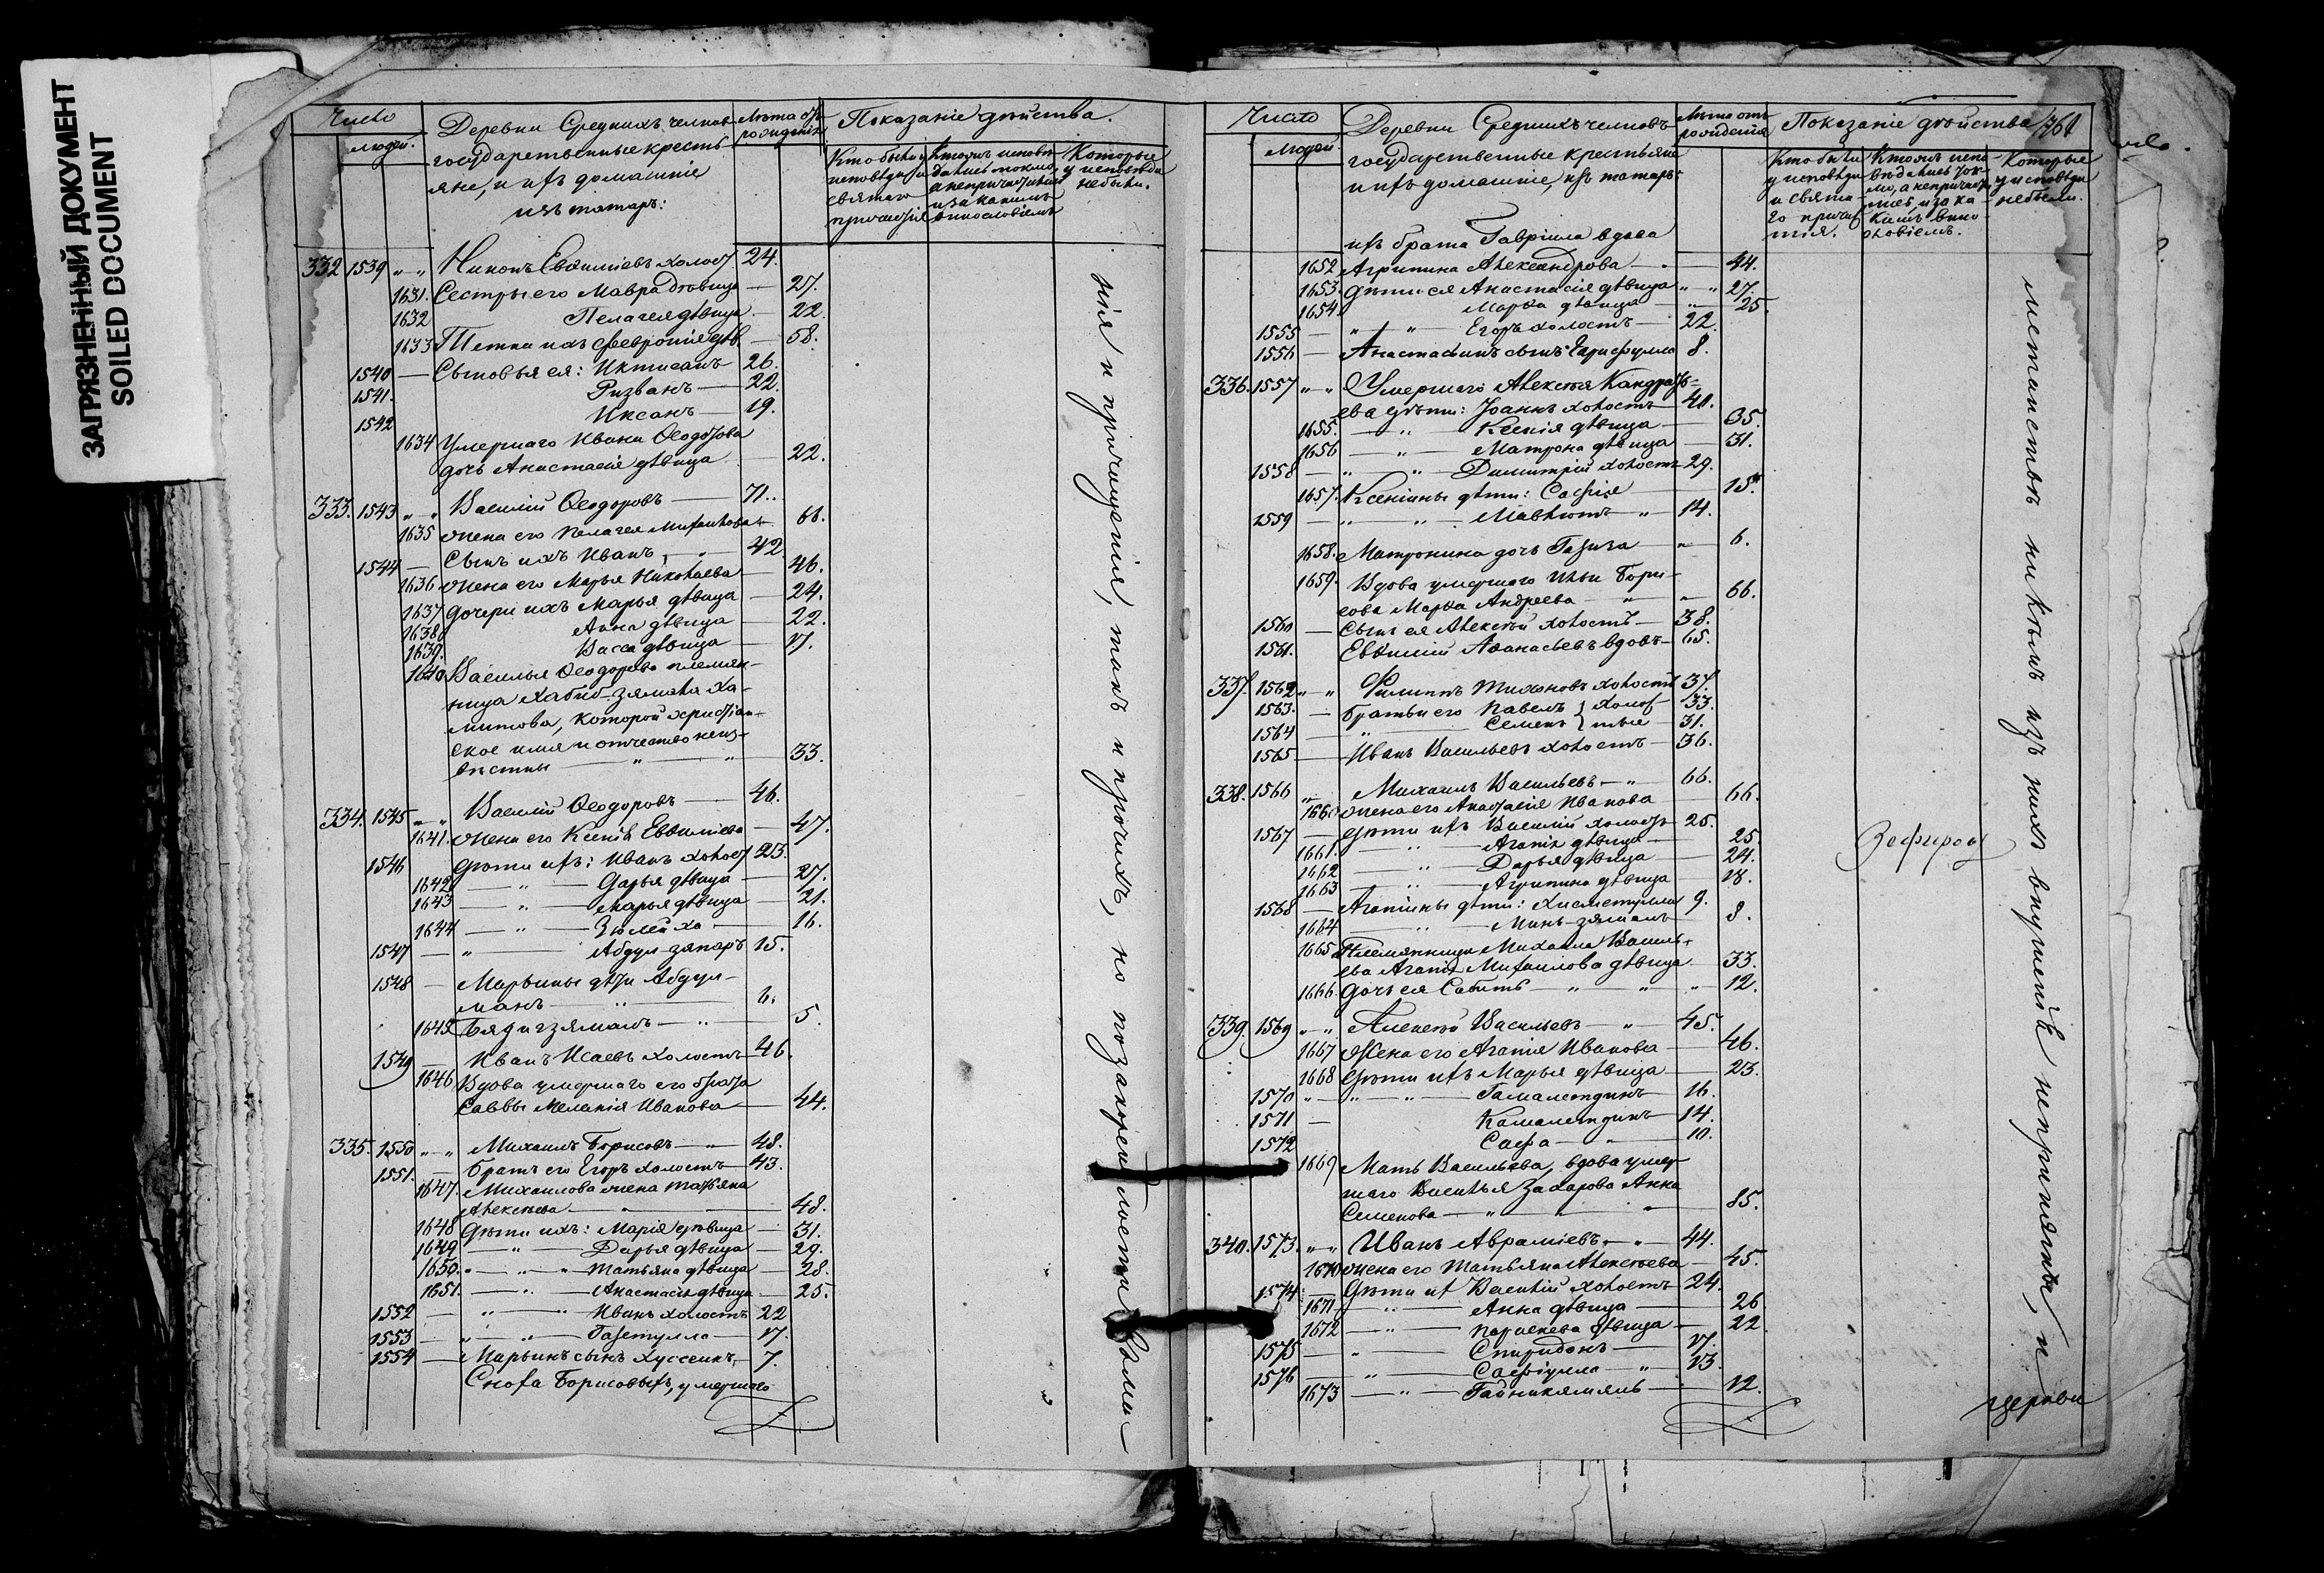 ЗАГРЯЗНЕННЫЙ ДОКУМЕНТ
SOILED DOCUMENT
Число
людей.
Деревни Среднихъ челновъ
государственные кресть
яне, и ихъ домашніе
изъ татаръ:
Лѣта отъ
рожденія
Показаніе дѣйства.
Кто были у
исповѣди и
святаго
причастія
Кто изъ исповѣ
дались токмо,
а непричастились
и за какимъ
винословіемъ
Которые
у исповѣди
небыли.
332 1539 „ „ Никонъ Евѳиміевъ холост 24.
1631. Сестры его Мавра дѣвица — 27.
1632 Пелагея дѣвица — 22.
1633 Тетка ихъ Февронія дѣв. — 58.
1540 — Сыновья ея: Иктисамъ 26.
1541. Ризванъ — 22.
1542 Иксанъ — 19.
1634 Умершаго Ивана Ѳеодотова
дочь Анастасія дѣвица — 22.
333. 1543 „ „ Василій Ѳеодоровъ — 71.
1635 жена его Пелагея Михайлова — 66.
1544 — Сынъ ихъ Иванъ — „ 42.
1636 жена его Марья Николаева — 46.
1637 дочери ихъ Марья дѣвица — 24.
1638. Анна дѣвица — 22.
1639. Васса дѣвица — 17.
1640 Василья Ѳеодорова племян-
ница Хабиб-зямала Ха-
митова, которой христіан-
ское имя и отчество неиз-
вѣстны — „ — „ 33.
334. 1545 „ „ Василій Ѳеодоровъ — 46.
1641. жена его Ксенія Евѳиміева — 47.
1546 дѣти ихъ: Иванъ холост 23.
1642 — „ — Дарья дѣвица — 27.
1643 — „ — Марья дѣвица — 21.
1644 — „ — Зюлейха — 16.
1547 — „ — Абдул-запаръ 15.
1548 — Марьины дѣти Абдул-
манъ — „ — 6.
1645 Бядигзямалъ — „ — 5.
1549 — Иванъ Исаевъ холостъ — 46.
1646 Вдова умершаго его брата
Саввы Меланія Иванова — 44.
335. 1550 „ „ Михаилъ Борисовъ — „ 48.
1551. — братъ его Егоръ холостъ — 43.
1647. Михайлова жена Татьяна
Алексѣева — „ — 48.
1648 Дѣти ихъ: Марія дѣвица — 31.
1649 — „ — Дарья дѣвица — 29.
1650. „ — „ — Татьяна дѣвица — 28.
1651. — „ — Анастасія дѣвица — 25.
1552 — „ — „ Иванъ холостъ 22
1553 — „ — „ — Газетулла — 17.
1554 — Марьинъ сынъ Хуссеинъ, 7.
Сноха Борисовыхъ, умершаго
нія и причащенія, такъ и прочихъ, но по закоренѣлости въ маго-
Число
Людей
Деревни Среднихъ челновъ
государственные крестьяне
и ихъ домашніе, изъ татаръ:
Лѣта отъ
рожденія
Показаніе дѣйства
761
Кто были
у исповѣди
и свята-
го причас
тія.
Кто изъ испо-
вѣдались ток-
мо, а непричасти
лись, и за ка-
кимъ вино-
словіемъ.
Которые
у исповѣди
небыли.
ихъ брата Гавріила вдова
1652 Агрипина Александрова — 44.
1653. Дѣти ея Анастасія дѣвица „ „ 27.
1654. Марѳа дѣвица — „ 25.
1555 — „ „ Егоръ холостъ — 22.
1556 — Анастасьинъ сынъ Гарифулла 8.
336. 1557 „ „ Умершаго Алексѣя Кондрать-
ева дѣти: Іоаннъ холостъ 40.
1655. — „ — Ксенія дѣвица — 35.
1656 — „ — Матрона дѣвица — 31.
1558 — „ „ — Димитрій холостъ 29.
1657. Ксеніины дѣти: Сафія — 15.
1559 — „ „ — Мавлютъ — „ 14.
1658. Матронина дочь Газиза — „ 6.
1659. Вдова умершаго Ильи Бори-
сова Марѳа Андреева — „ — 66.
1560 — Сынъ ея Алексѣй холостъ — 38.
1561. Евѳимій Аѳанасьевъ вдовъ — 65.
337. 1562 „ „ Филиппъ Тихоновъ холостъ 37.
1563. — братьи его Павелъ } холос- 33.
1564 — „ — Семенъ } тые — 31.
1565 — Иванъ Васильевъ холостъ — 36.
338. 1566 „ Михаилъ Васильевъ — „ 66.
1660 жена его Анастасія Иванова — 66.
1567 — дѣти ихъ Василій холостъ 25.
1661. — „ — Агапія дѣвица — 25.
1662 — „ — Дарья дѣвица — 24.
1663 — „ — Агрипина дѣвица — 18.
1568 — Агапіины дѣти: Хисметулла 9.
1664 — „ — Минь-зямалъ — 8.
1665 Племянница Михаила Василь-
ева Агапія Михаилова дѣвица — 33.
1666 Дочь ея Сабитъ — „ — „ 12.
339. 1569 „ „ Алексѣй Васильевъ — „ 45.
1667 Жена его Агапія Иванова — 46.
1668 Дѣти ихъ Марья дѣвица — 23.
1570 „ „ — „ — Гамалетдинъ — 16.
1571 — Камалетдинъ — 14.
1572 Сафа — „ 10.
1669 Мать Васильева, вдова умер-
шаго Василья Захарова Анна
Семенова — „ — „ 85.
340. 1573. „ „ Иванъ Авраміевъ — „ 44.
1670 жена его Татьяна Алексѣева — 45.
1574 — Дѣти их Василій холостъ 24.
1671 — „ — Анна дѣвица — 26
1672 — „ — Параскева дѣвица — 22
1575 — „ — Спиридонъ — 17.
1576 — „ — Сафіулла — „ 13.
1673 — „ — Габникямаль — 12.
метанствѣ никѣмъ изъ нихъ внушеніе непринято, и
Зефировъ
церкви